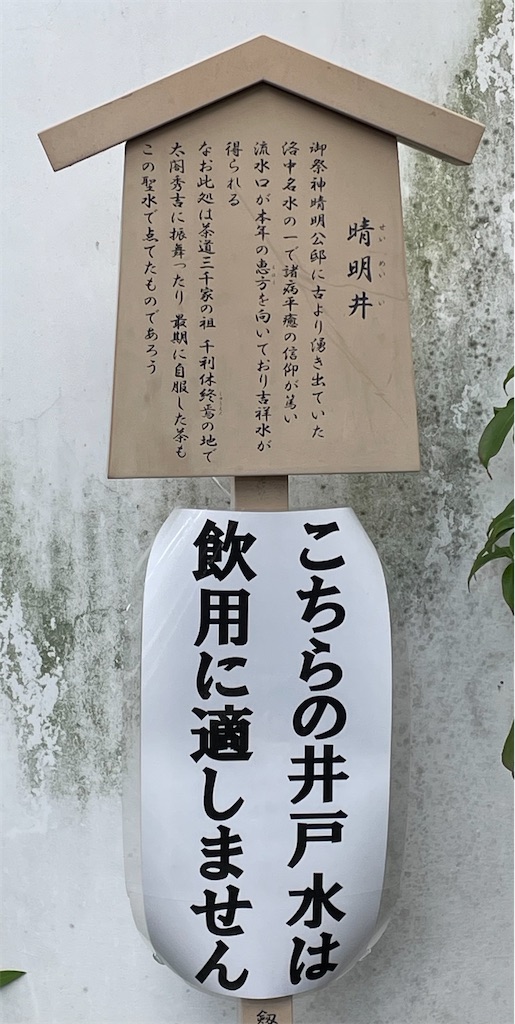 晴明井
せいめいい
御祭神晴明公邸に古より湧き出ていた
洛中名水の一で諸病平癒の信仰が篤い
流水口が本年の恵方を向いており吉祥水が
得られる
なお此処は茶道三千家の祖 千利休終焉の地で
太閤秀吉に振舞ったり 最期に自服した茶も
この聖水で点てたものであろう
こちらの井戸水は
飲用に適しません